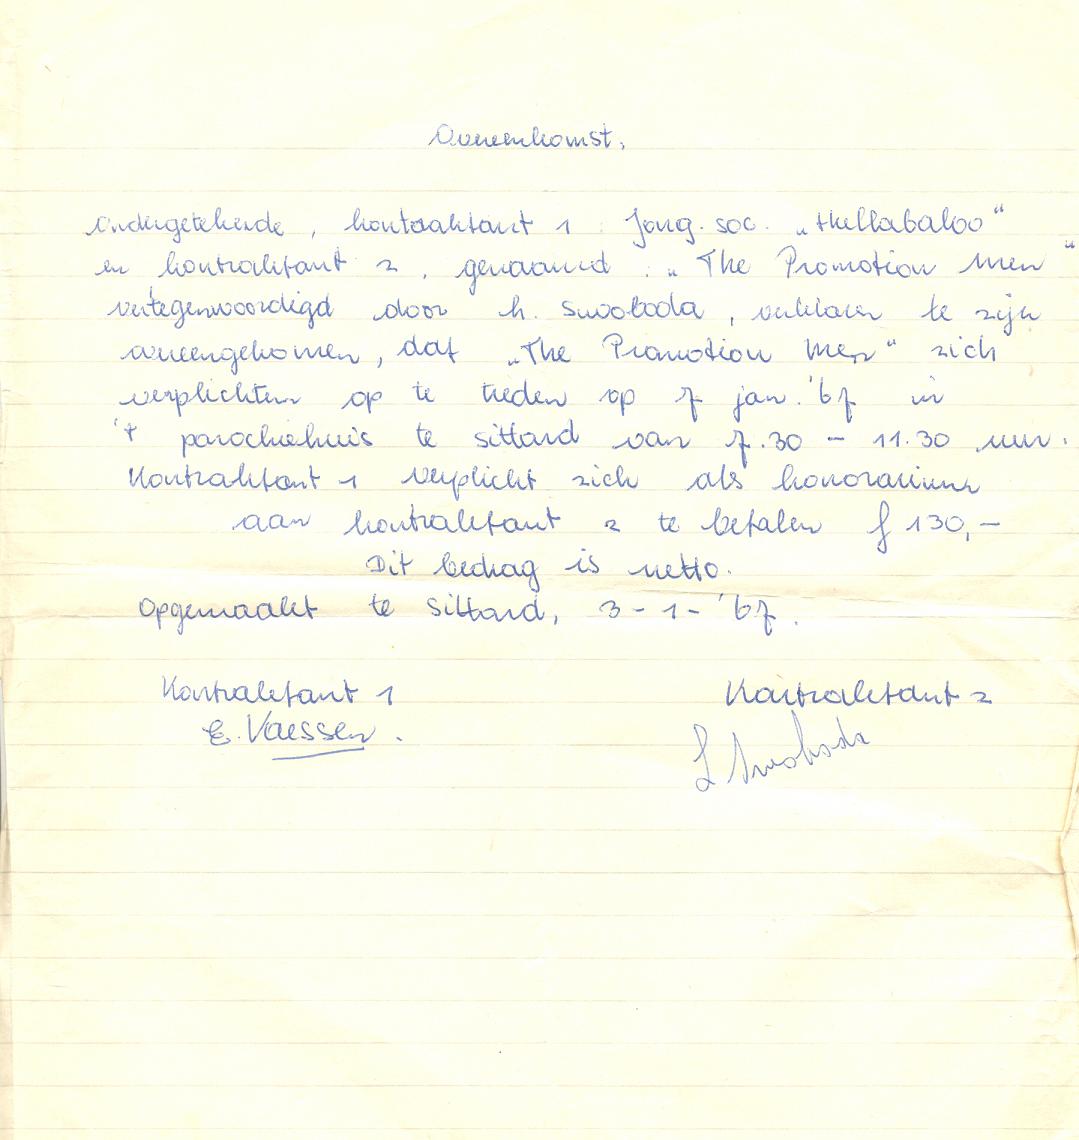 Overeenkomst.
Ondergetekende, kontraktant 1 Jong. soc. „Hullabaloo“
en kontraktant 2, genaamd „The Promotion Men“
vertegenwoordigd door h. Swoboda, verklaren te zijn
overeengekomen, dat „The Promotion Men“ zich
verplichten op te treden op 7 jan. '67 in
't parochiehuis te Sittard van 7.30 - 11.30 uur.
Kontraktant 1 verplicht zich als honorarium
aan kontraktant 2 te betalen f 130,-
Dit bedrag is netto.
Opgemaakt te Sittard, 3-1-'67.
Kontraktant 1 Kontraktant 2
E. Vaessen. L Swoboda